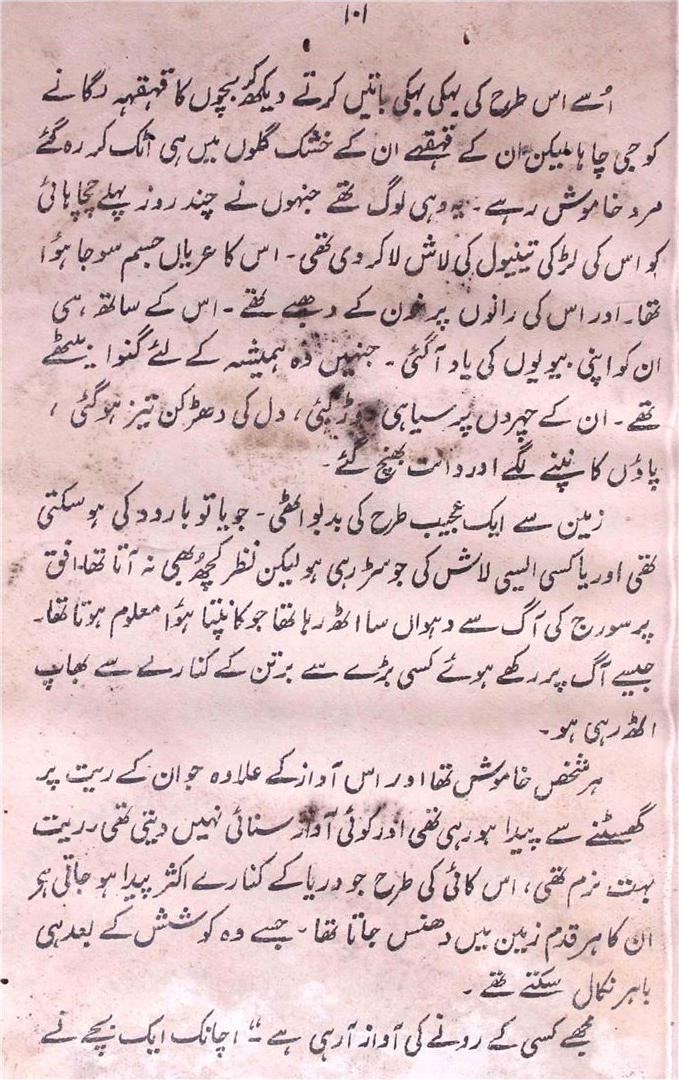 ۱۰۱
اُسے اس طرح کی بہکی بہکی باتیں کرتے دیکھ کر بچوں کا قہقہہ لگانے
کو جی چاہا لیکن ان کے قہقہے ان کے خشک گلوں میں ہی اٹک کر رہ گئے
مرد خاموش رہے ۔ یہ وہی لوگ تھے جنہوں نے چند روز پہلے چچا ہائی
کو اس کی لڑکی تینیول کی لاش لا کر دی تھی ۔ اس کا عریاں جسم سوجا ہؤا
تھا۔ اور اس کی رانوں پر خون کے دھبے تھے ۔ اس کے ساتھ ہی
ان کو اپنی بیویوں کی یاد آ گئی ۔ جنہیں وہ ہمیشہ کے لئے گنوا بیٹھے
تھے ۔ ان کے چہروں پر سیاہی دوڑ گئی ، دل کی دھڑکن تیز ہو گئی ،
پاؤں کانپنے لگے اور دانت بھنچ گئے ۔
زمین سے ایک عجیب طرح کی بدبو اٹھی ۔ جو یا تو بارود کی ہو سکتی
تھی اور یا کسی ایسی لاش کی جو سڑ رہی ہو لیکن نظر کچھ بھی نہ آتا تھا۔ افق
پر سورج کی آگ سے دہواں سا اٹھ رہا تھا جو کانپتا ہؤا معلوم ہوتا تھا۔
جیسے آگ پر رکھے ہوئے کسی بڑے سے برتن کے کنارے سے بھاپ
اٹھ رہی ہو ۔
ہر شخص خاموش تھا اور اس آواز کے علاوہ جو ان کے ریت پر
گھسٹنے سے پیدا ہو رہی تھی اور کوئی آواز سنائی نہیں دیتی تھی ۔ ریت
بہت نرم تھی ، اس کائی کی طرح جو دریا کے کنارے اکثر پیدا ہو جاتی ہو
ان کا ہر قدم زمین میں دھنس جاتا تھا ۔ جسے وہ کوشش کے بعد ہی
باہر نکال سکتے تھے ۔
مجھے کسی کے رونے کی آواز آ رہی ہے ۔“ اچانک ایک بچے نے